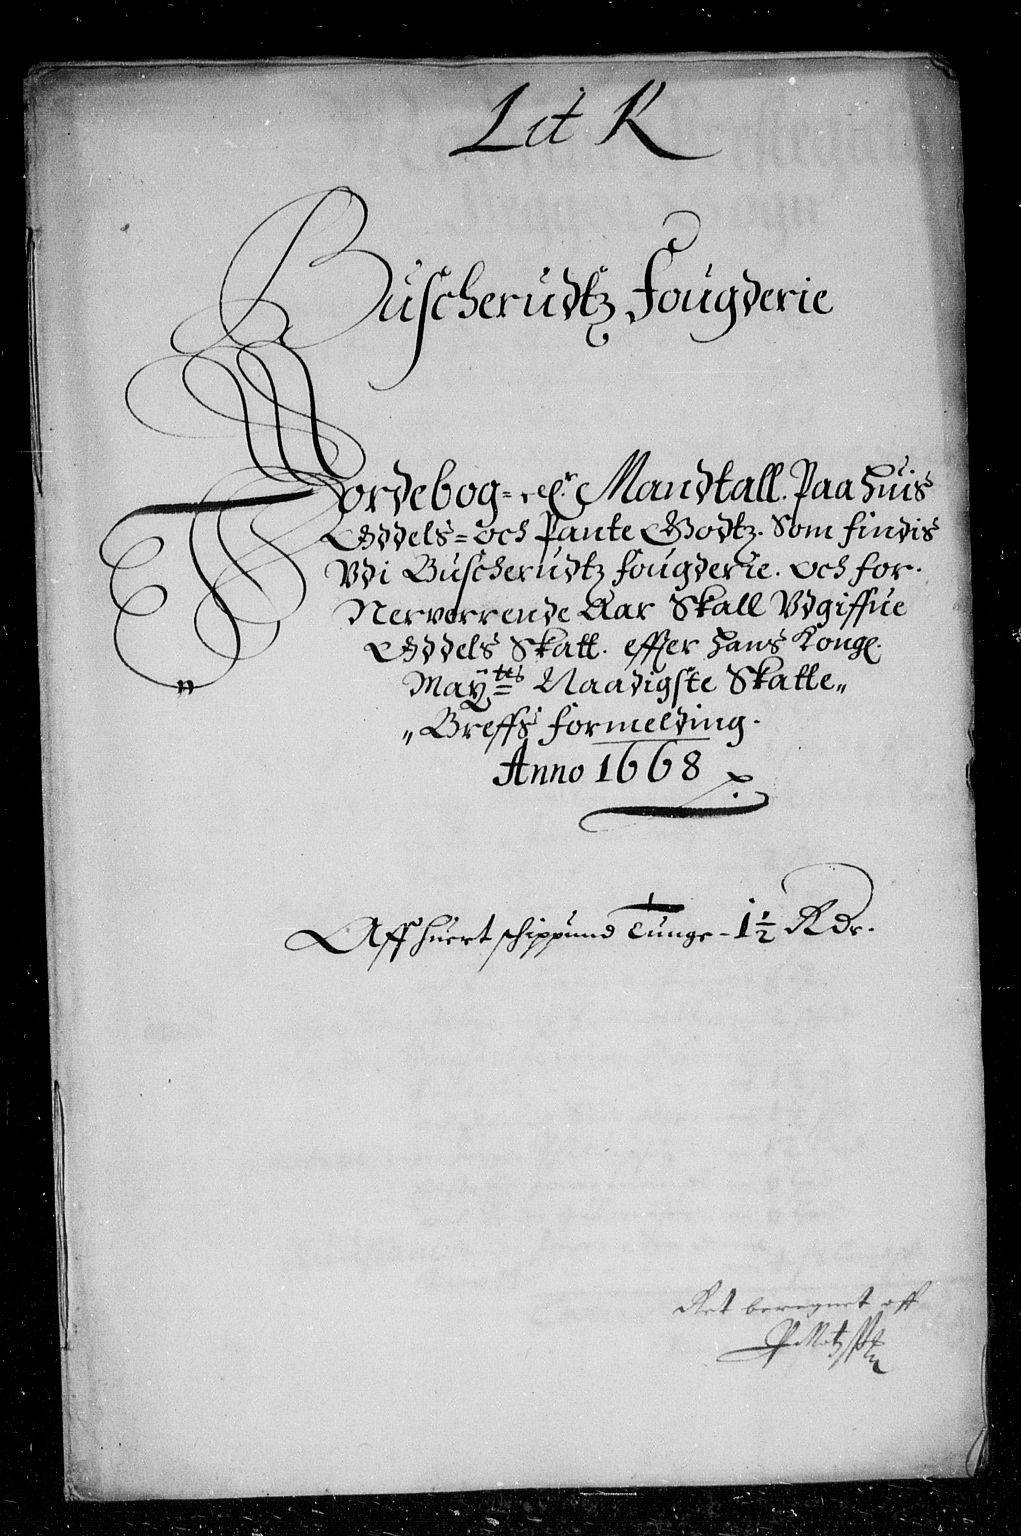 Lit K
Buscherudtz Fougderie
Jordebog = Mandtall. Paa huis
Oddels = och Pante Godtz. Som findis
Vdi Buscherudtz fougderie. och for.
Nerverrende Aar Skall Vdgiffue
Oddels Skatt. effter Hans Kongl.
Maÿtts Naadigste Skatte„
„Breffs formelding.
Anno 1668
Aff huert schippund Tunge - 1½ Rdr.
Ret beregnet aff